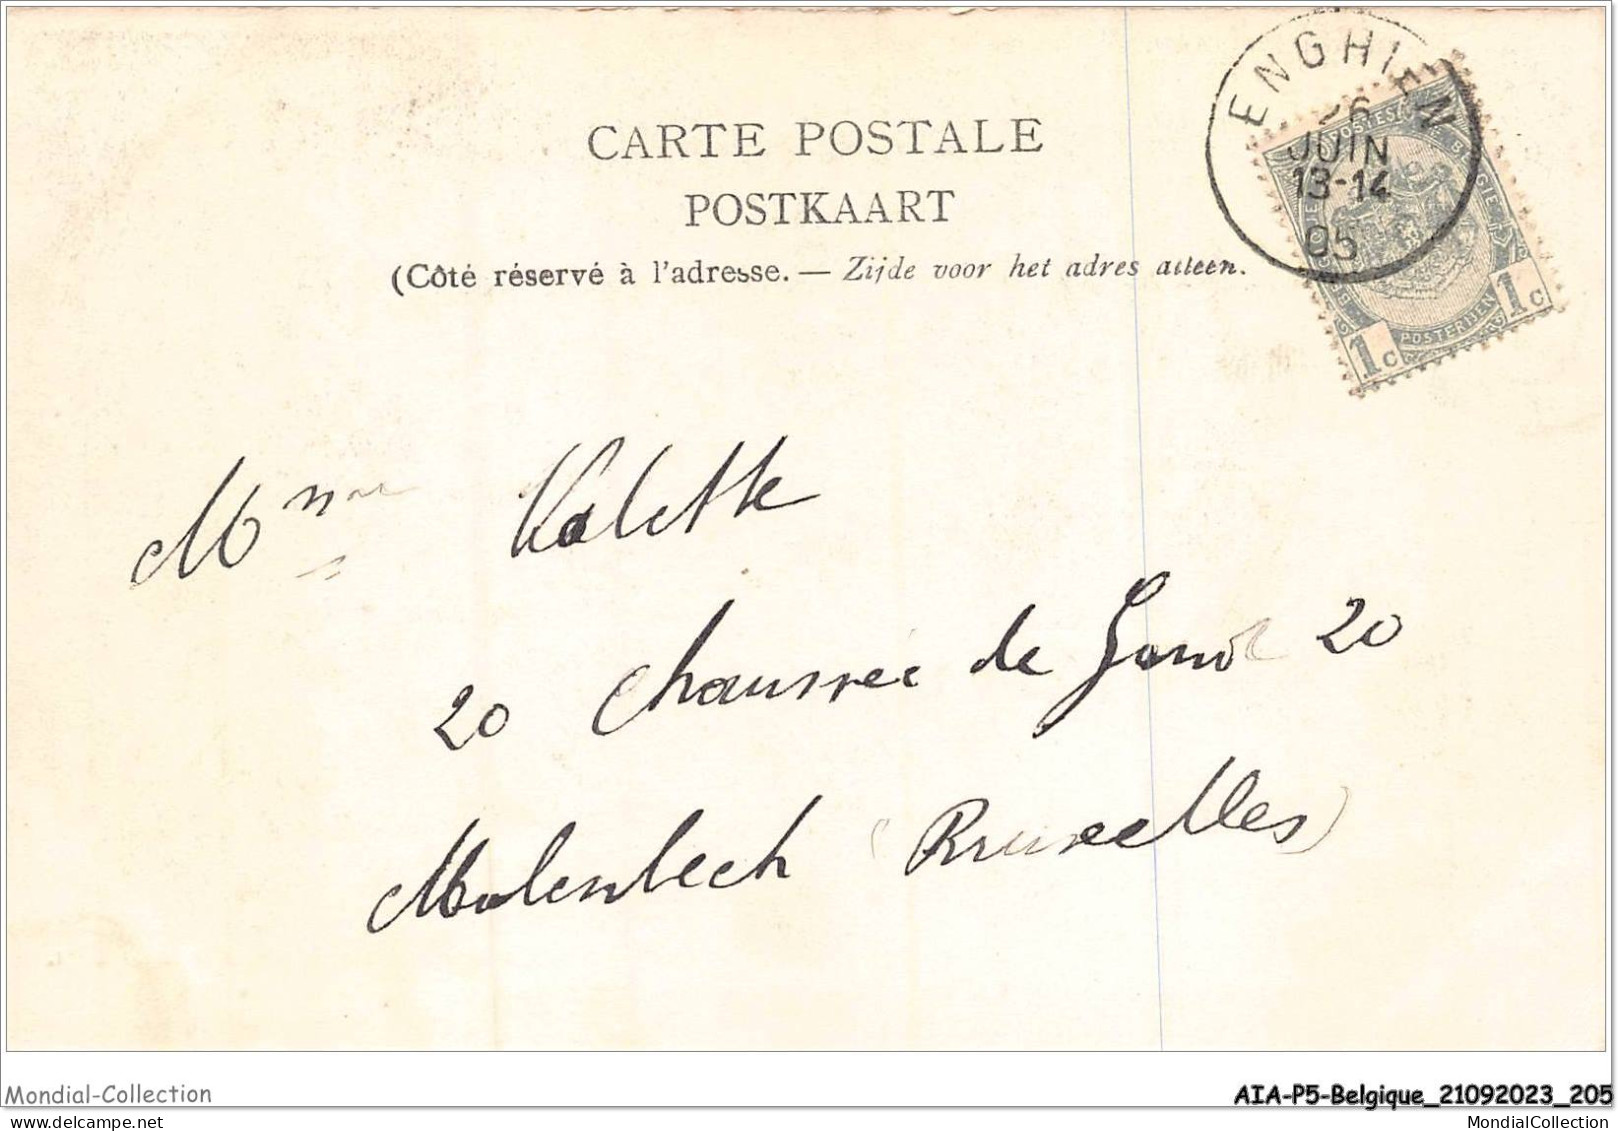 CARTE POSTALE
POSTKAART
(Côté réservé à l'adresse. — Zijde voor het adres alleen.
ENGHIEN
26
JUIN
13-14
05
POSTES BELGIQUE
BELGIE
POSTERIJEN
1c 1c
Mme Valette
20 Chaussée de Gand 20
Molenbech (Bruxelles)
Mondial-Collection
AIA-P5-Belgique_21092023_205
MondialCollection.com
MondialCollection